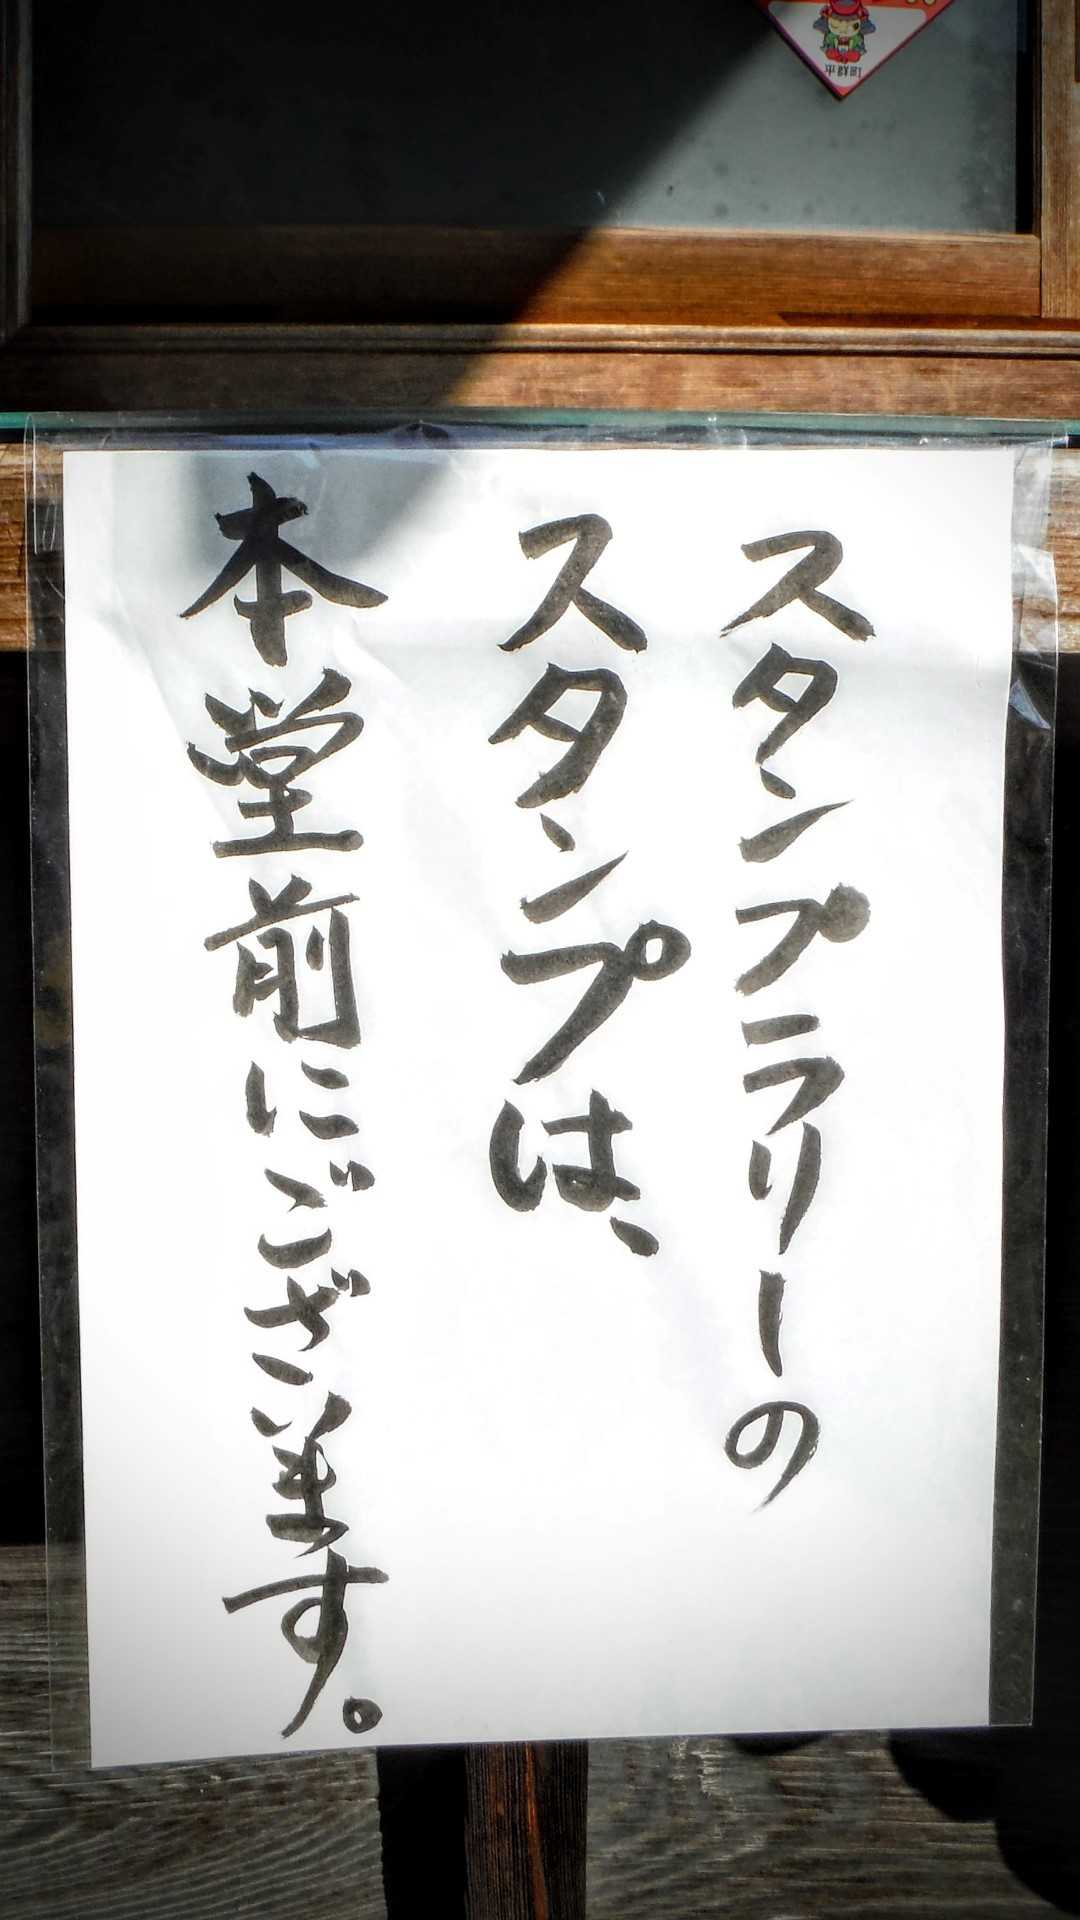 平群町
スタンプラリーの
スタンプは、
本堂前にございます。